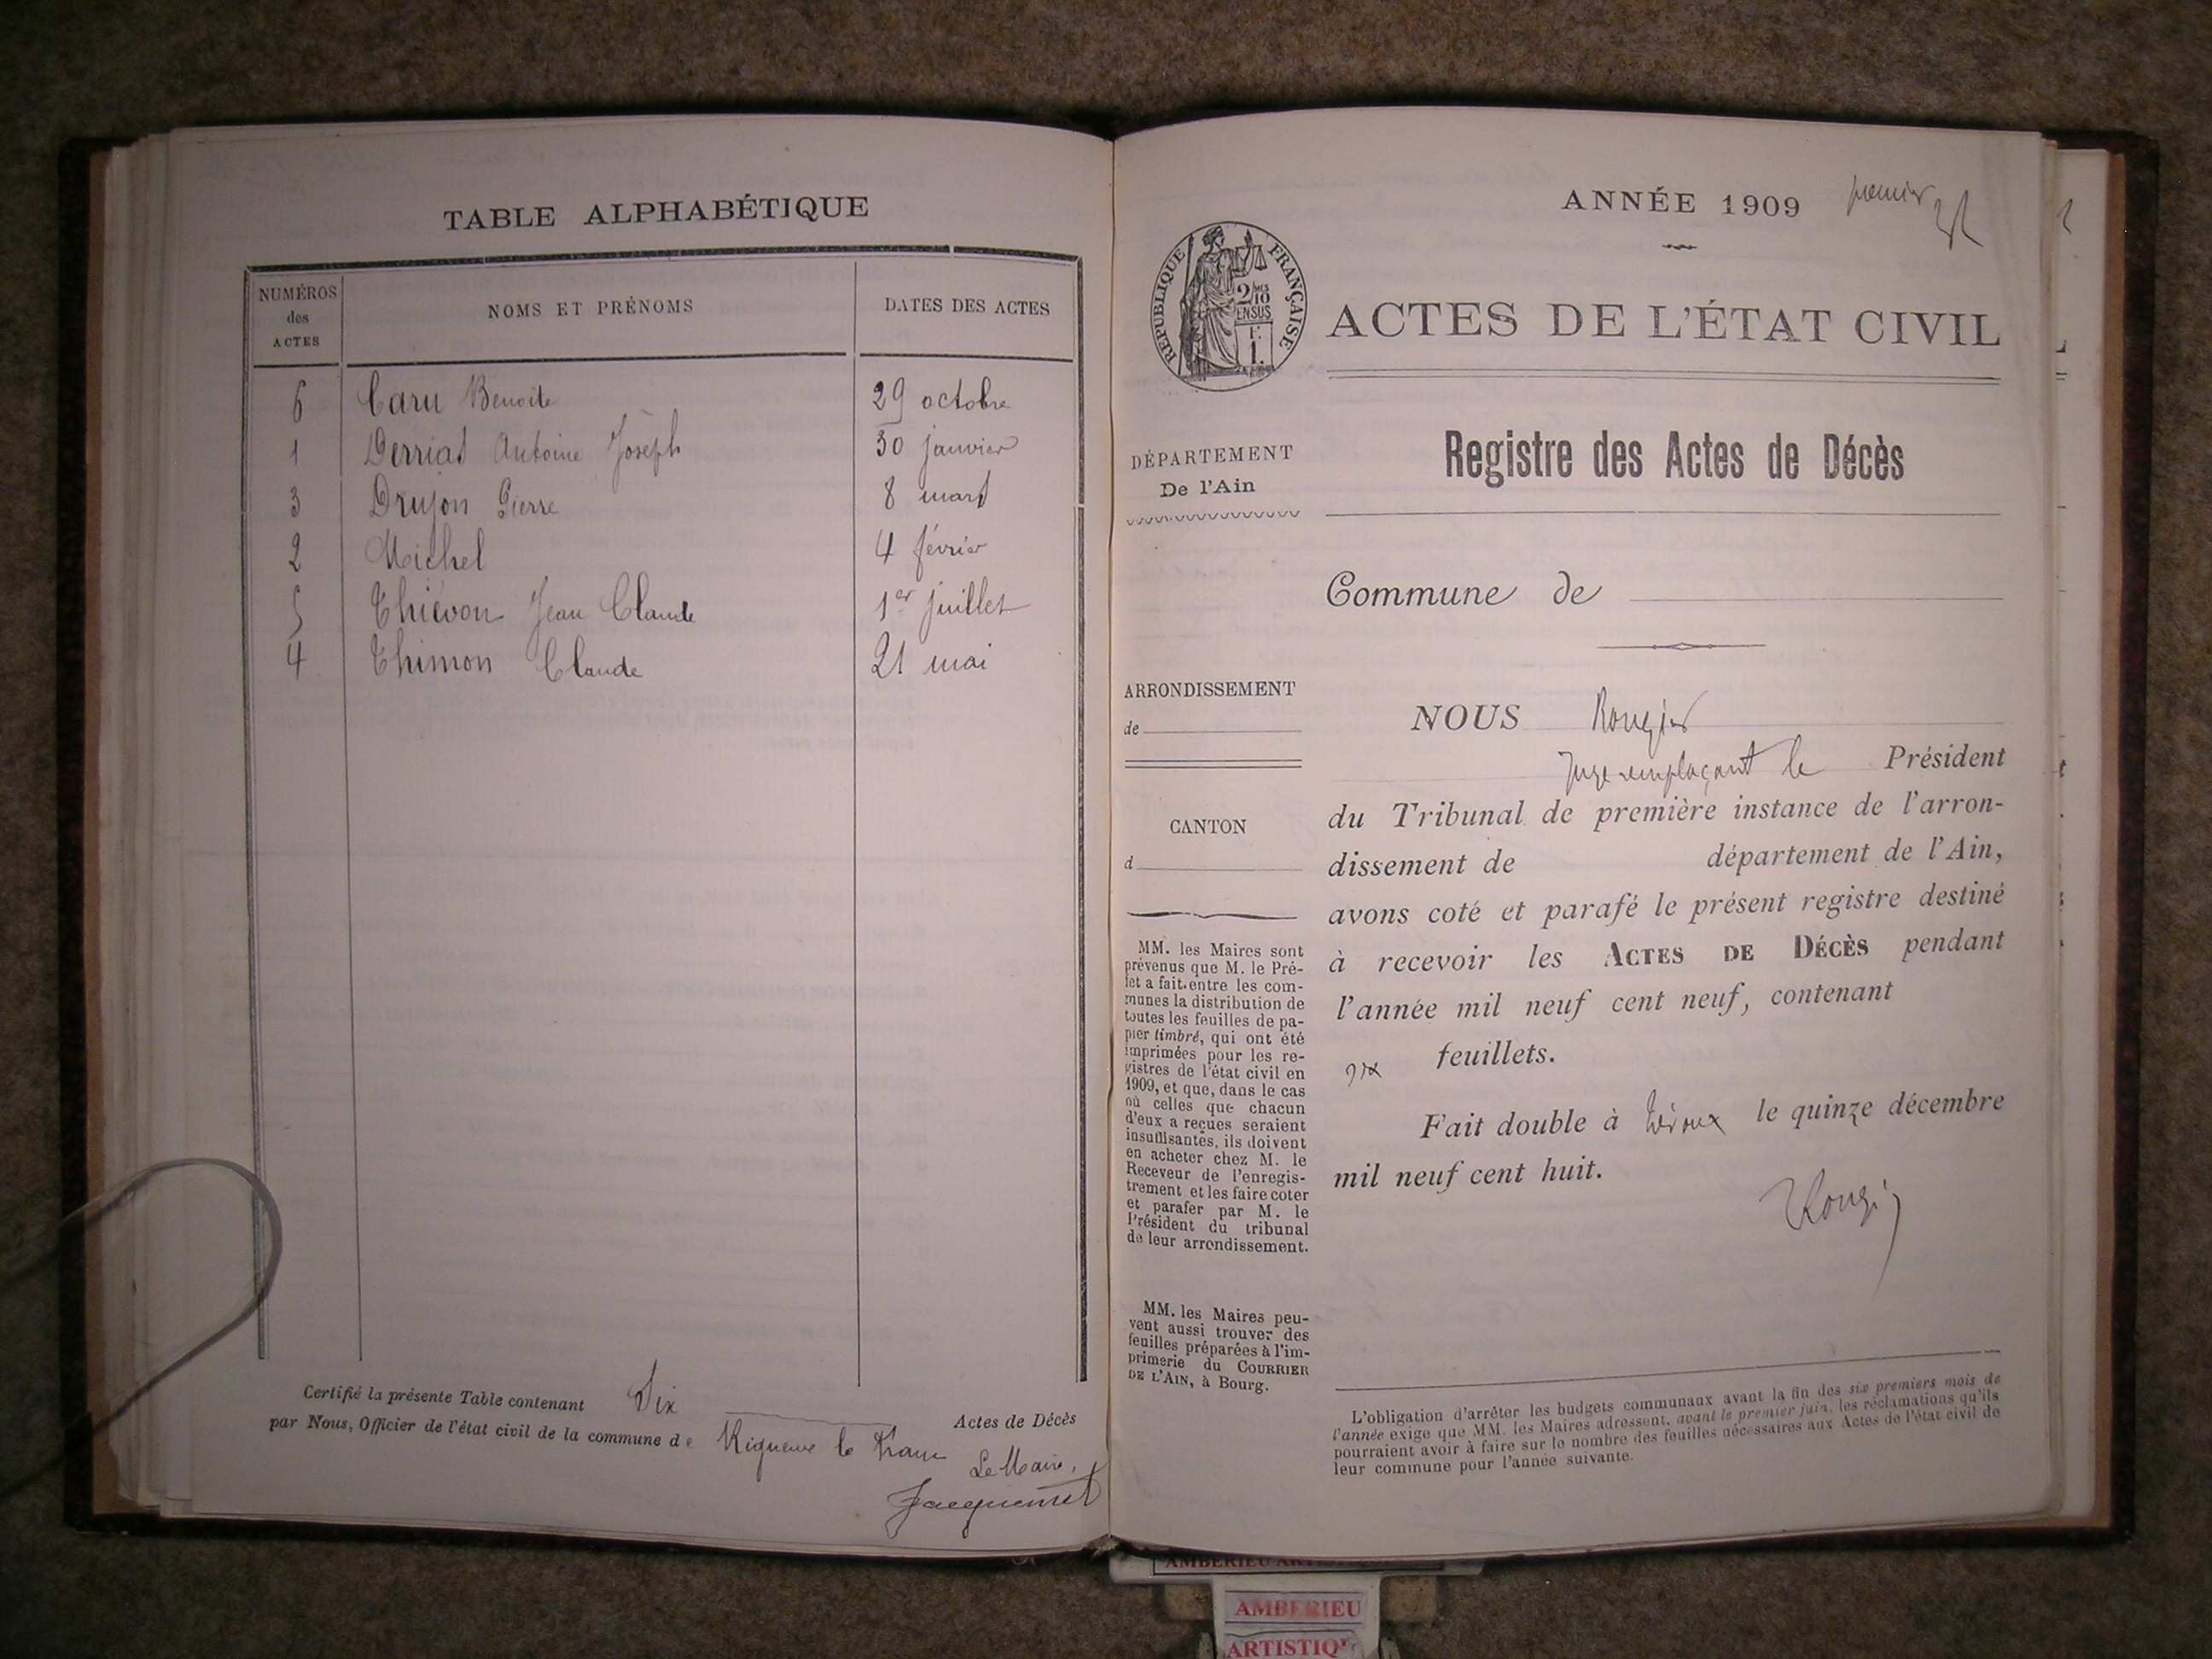 TABLE ALPHABÉTIQUE
NUMÉROS des ACTES
NOMS ET PRÉNOMS
DATES DES ACTES
6 Caru Benoite 29 octobre
1 Derriat Antoine Joseph 30 janvier
3 Drujon Pierre 8 mars
2 Michel 4 février
5 Thiévon Jean Claude 1er juillet
4 Thimon Claude 21 mai
Certifié la présente Table contenant Six Actes de Décès
par Nous, Officier de l'état civil de la commune de Rigneux le Franc
Le Maire,
Jacquemet
ANNÉE 1909 premier
RÉPUBLIQUE FRANÇAISE
2/10
EN SUS
ACTES DE L'ÉTAT CIVIL
DÉPARTEMENT
De l'Ain
Registre des Actes de Décès
Commune de
ARRONDISSEMENT
de
CANTON
d
MM. les Maires sont
prévenus que M. le Pré-
fet a fait entre les com-
munes la distribution de
toutes les feuilles de pa-
pier timbré, qui ont été
imprimées pour les re-
gistres de l'état civil en
1909, et que, dans le cas
où celles que chacun
d'eux a reçues seraient
insuffisantes, ils doivent
en acheter chez M. le
Receveur de l'enregis-
trement et les faire coter
et parafer par M. le
Président du tribunal
de leur arrondissement.
MM. les Maires peu-
vent aussi trouver des
feuilles préparées à l'im-
primerie du COURRIER
DE L'AIN, à Bourg.
NOUS Rougier
Juge remplaçant le Président
du Tribunal de première instance de l'arron-
dissement de département de l'Ain,
avons coté et parafé le présent registre destiné
à recevoir les ACTES DE DÉCÈS pendant
l'année mil neuf cent neuf, contenant
feuillets.
Fait double à Trévoux le quinze décembre
mil neuf cent huit.
Rougier
L'obligation d'arrêter les budgets communaux avant la fin des six premiers mois de
l'année exige que MM. les Maires adressent, avant le premier juin, les réclamations qu'ils
pourraient avoir à faire sur le nombre des feuilles nécessaires aux Actes de l'état civil de
leur commune pour l'année suivante.
AMBERIEU
ARTISTIQU